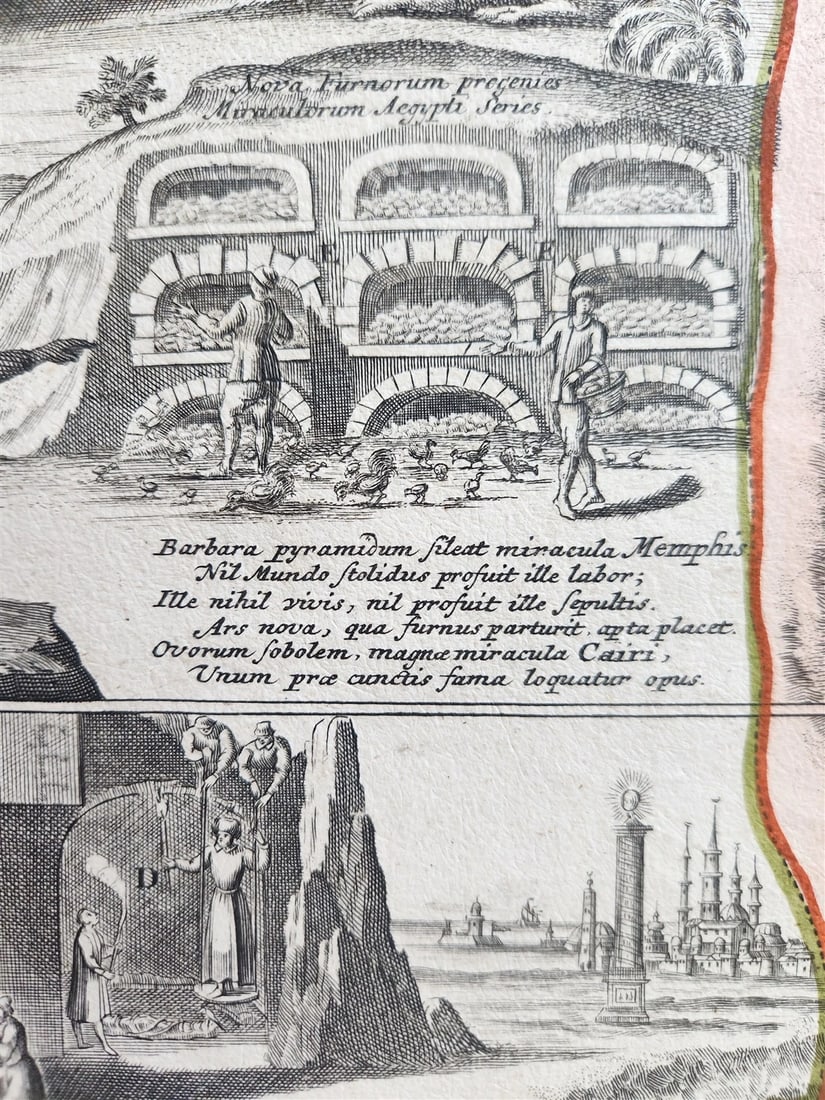 Nova Furnorum pregenies
Miraculorum Aegypti Series.
E E
Barbara pyramidum ſileat miracula Memphis
Nil Mundo ſtolidus profuit ille labor;
Ille nihil vivis, nil profuit ille ſepultis.
Ars nova, qua furnus parturit, apta placet.
Ovorum ſobolem, magnæ miracula Cairi,
Unum præ cunctis fama loquatur opus.
D